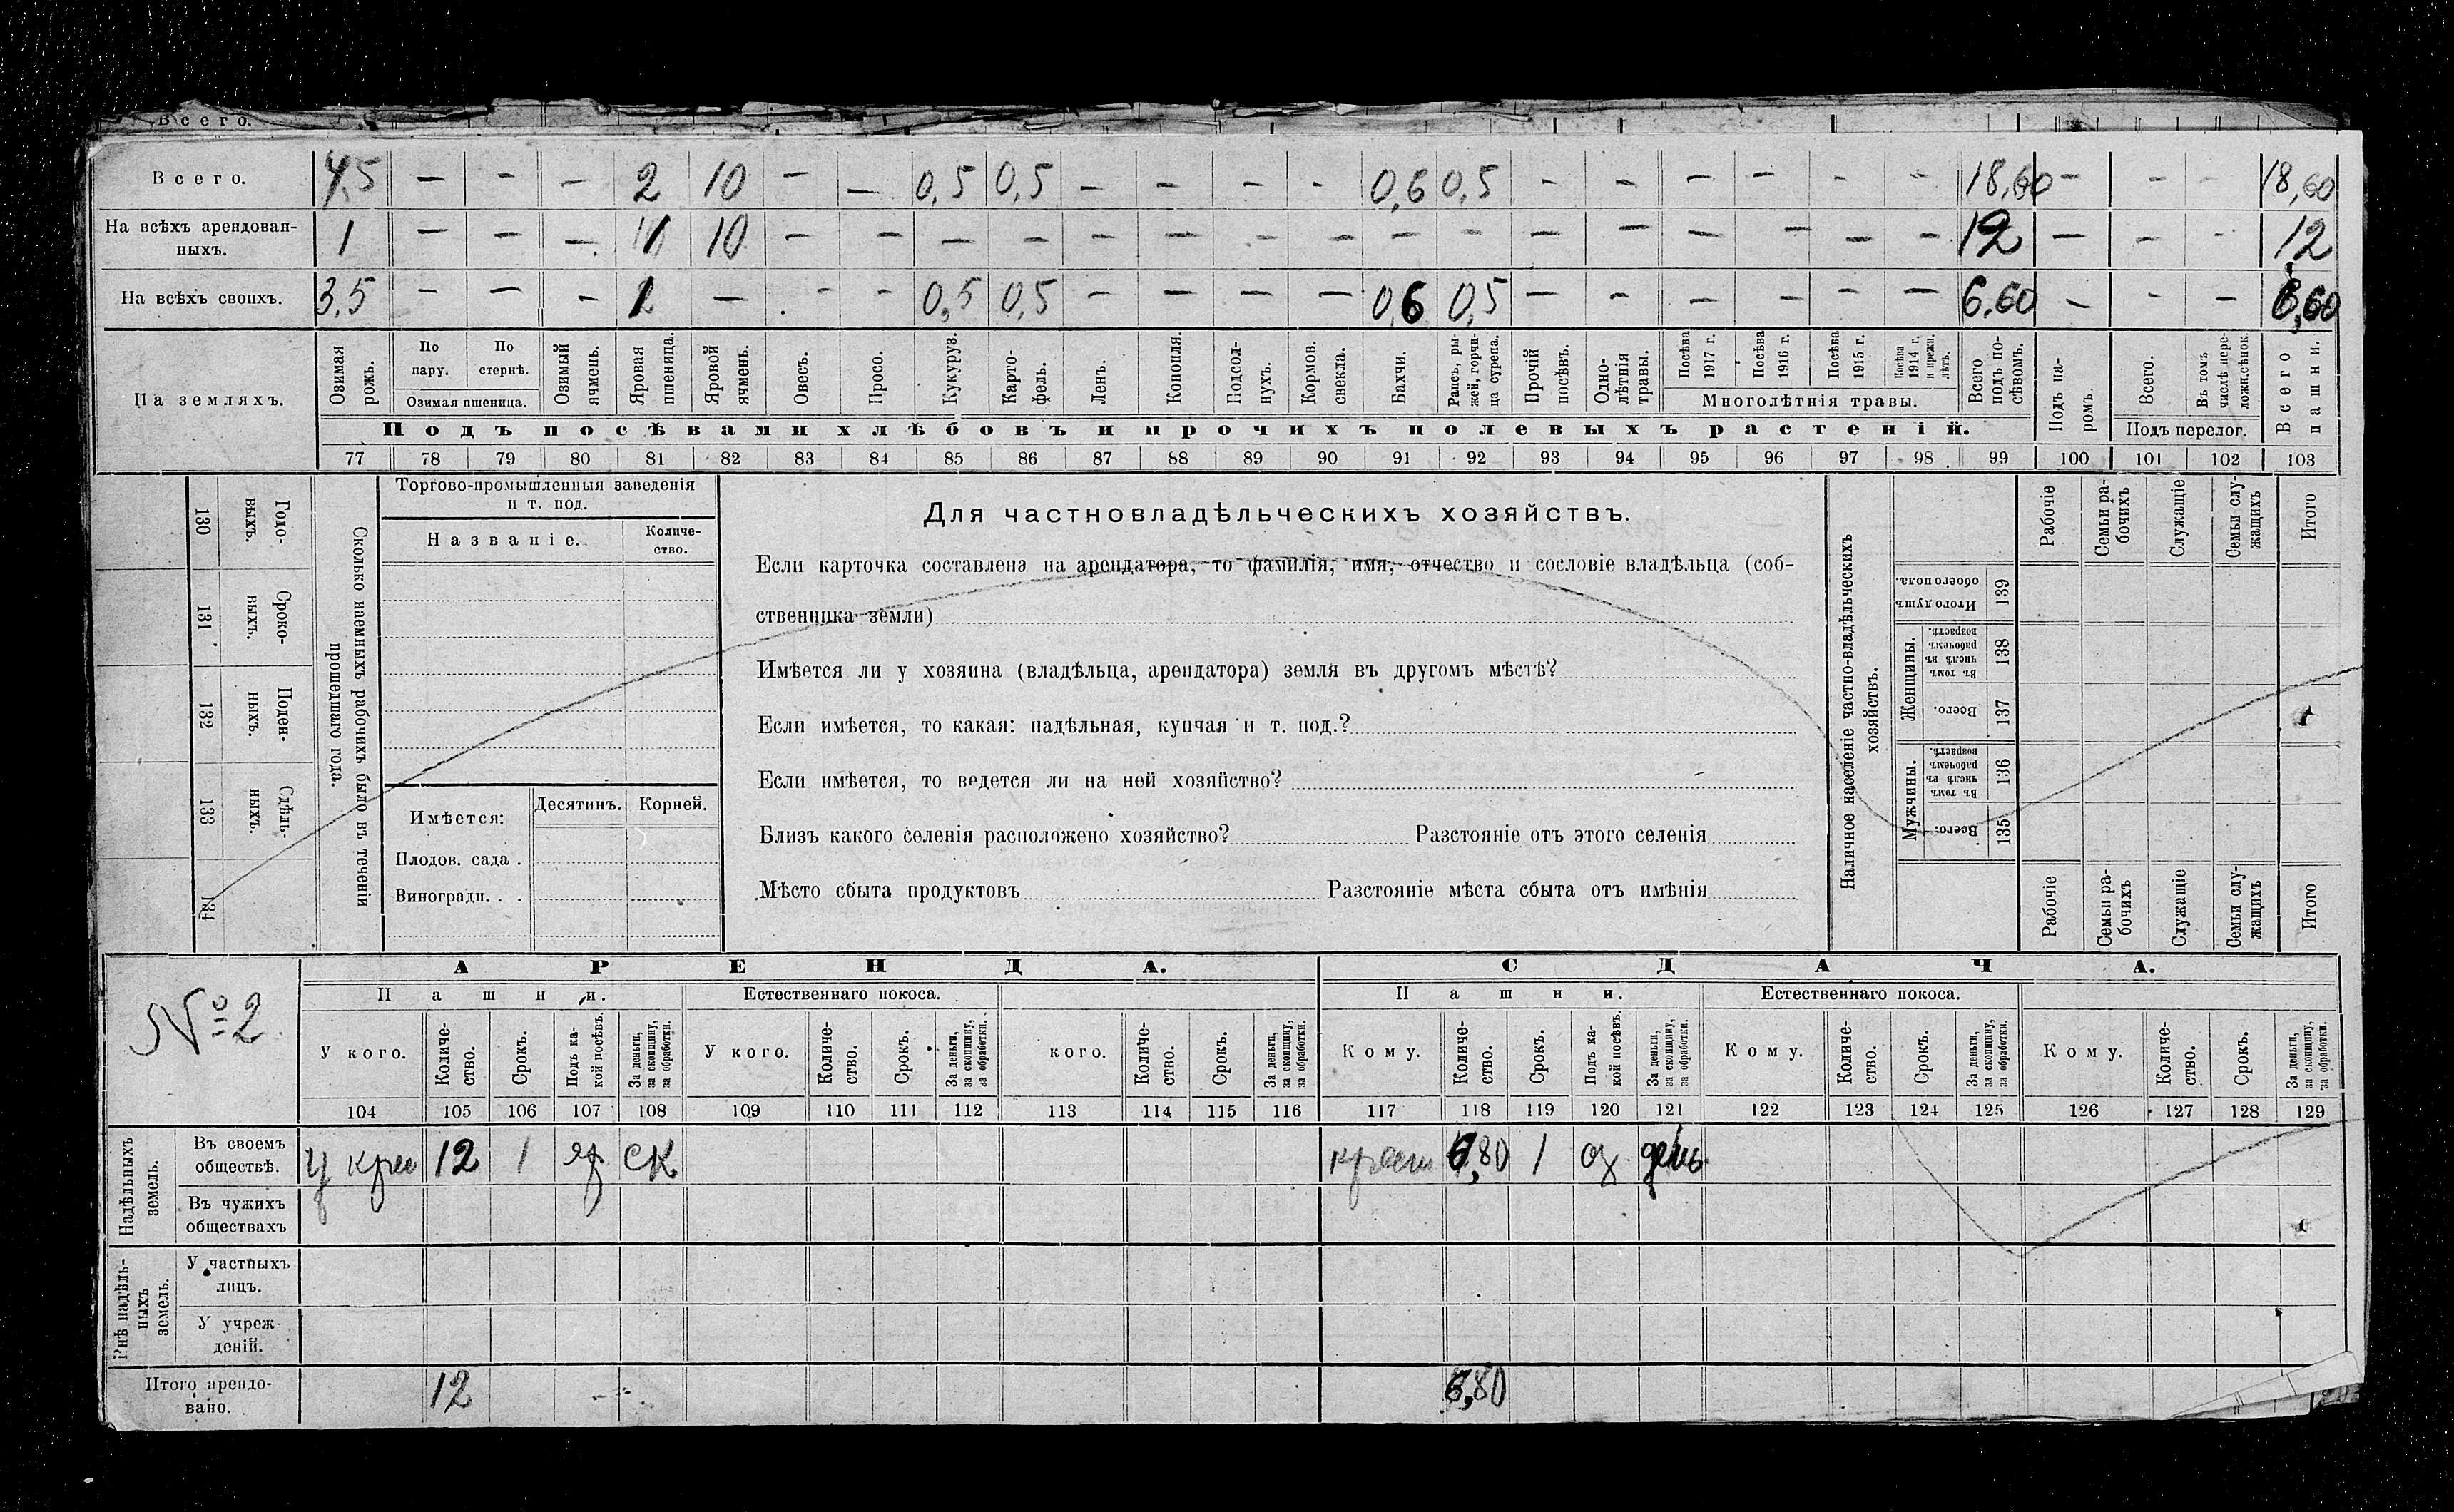 Всего.
Всего. 4,5 — — — 2 10 — — 0,5 0,5 — — — — 0,6 0,5 — — — — — — 18,60 — — — 18,60
На всѣхъ арендован-
ныхъ. 1 — — — 1 10 — — — — — — — — — — — — — — — — 12 — — — 12
На всѣхъ своихъ. 3,5 — — — 1 — — — 0,5 0,5 — — — — 0,6 0,5 — — — — — — 6.60 — — — 6,60
На земляхъ.
Озимая рожь.
По пару.
По стернѣ.
Озимая пшеница.
Озимый ячмень.
Яровая пшеница.
Яровой ячмень.
Овесъ.
Просо.
Кукуруз.
Карто-
фель.
Ленъ.
Конопля.
Подсол-
нухъ.
Кормов. свекла.
Бахчи.
Рапсъ, ры-
жей, горчи-
ца сурепа.
Прочій посѣвъ.
Одно-
лѣтнія травы.
Посѣва 1917 г.
Посѣва 1916 г.
Посѣва 1915 г.
Посѣва 1914 г. и прежн. лѣтъ.
Многолѣтнія травы.
Всего подъ по-
сѣвомъ.
Подъ па-
ромъ.
Всего.
Въ томъ числѣ пере-
ложн.сѣнок.
Подъ перелог.
Всего пашни.
Подъ посѣвами хлѣбовъ и прочихъ полевыхъ растеній.
77 78 79 80 81 82 83 84 85 86 87 88 89 90 91 92 93 94 95 96 97 98 99 100 101 102 103
130 Годо-
выхъ.
131 Сроко-
выхъ.
132 Поден-
ныхъ.
133 Сдѣль-
ныхъ.
134
Сколько наемныхъ рабочихъ было въ теченіи
прошедшаго года.
Торгово-промышленныя заведенія
и т. под.
Названіе.
Количе-
ство.
Имѣется:
Десятинъ.
Корней.
Плодов. сада .
Виноградн. . .
Для частновладѣльческихъ хозяйствъ.
Если карточка составлена на арендатора, то фамилія, имя, отчество и сословіе владѣльца (соб-
ственника земли)
Имѣется ли у хозяина (владѣльца, арендатора) земля въ другомъ мѣстѣ?
Если имѣется, то какая: надѣльная, купчая и т. под.?
Если имѣется, то ведется ли на ней хозяйство?
Близъ какого селенія расположено хозяйство? Разстояніе отъ этого селенія
Мѣсто сбыта продуктовъ Разстояніе мѣста сбыта отъ имѣнія
Наличное населеніе частно-владѣльческихъ
хозяйствъ.
Рабочіе
Семьи ра-
бочихъ
Служащіе
Семьи слу-
жащихъ
Итого
Итого душъ обоего пола.
139
Женщины.
Въ томъ числѣ въ рабочемъ возрастѣ.
138
Всего.
137
Мужчины.
Въ томъ числѣ въ рабочемъ возрастѣ.
136
Всего.
135
Рабочіе
Семьи ра-
бочихъ
Служащіе
Семьи слу-
жащихъ
Итого
№2
АРЕНДА.
СДАЧА.
Пашни.
Естественнаго покоса.
Пашни.
Естественнаго покоса.
У кого.
Количе-
ство.
Срокъ.
Подъ ка-
кой посѣвъ.
За деньги,
за скопщину,
за обработки.
У кого.
Количе-
ство.
Срокъ.
За деньги,
за скопщину,
за обработки.
кого.
Количе-
ство.
Срокъ.
За деньги,
за скопщину,
за обработки.
Кому.
Количе-
ство.
Срокъ.
Подъ ка-
кой посѣвъ.
За деньги,
за скопщину,
за обработки.
Кому.
Количе-
ство.
Срокъ.
За деньги,
за скопщину,
за обработки.
Кому.
Количе-
ство.
Срокъ.
За деньги,
за скопщину,
за обработки.
104 105 106 107 108 109 110 111 112 113 114 115 116 117 118 119 120 121 122 123 124 125 126 127 128 129
Надѣльныхъ
земель.
Въ своемъ
обществѣ.
у 12 1 яр ск 6,80 1 оз день
Въ чужихъ
обществахъ
Внѣ надѣль-
ныхъ
земель.
У частныхъ
лицъ.
У учреж-
деній.
Итого арендо-
вано. 12 6,80